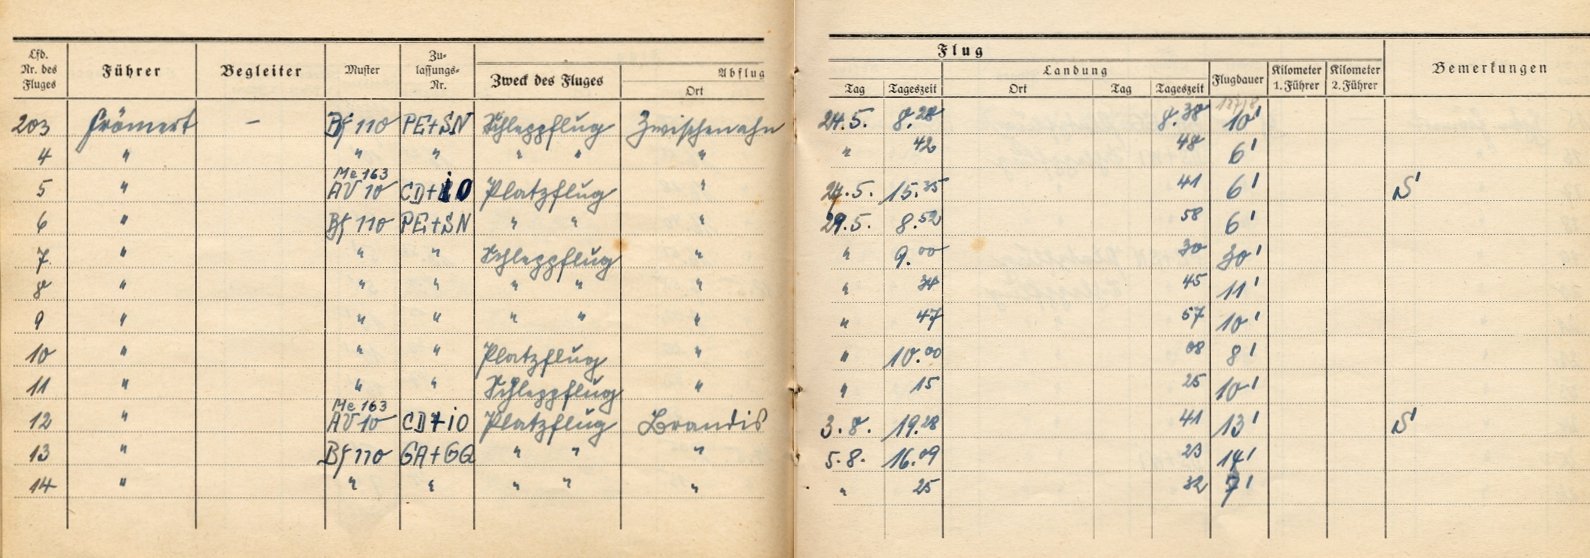 Lfd. Nr. des Fluges Führer Begleiter Muster Zu-lassungs-Nr. Zweck des Fluges Abflug Ort Tag Tageszeit Flug Landung Ort Tag Tageszeit Flugdauer Kilometer 1. Führer Kilometer 2. Führer Bemerkungen
203 Frömert – Bf 110 PE+SN Schleppflug Zwischenahn 24.5. 8.28 8.38 10'
4 " " " " " " " 42 48 6'
5 " Me 163 AV 10 CD+io Platzflug " 24.5. 15.35 41 6' S'
6 " Bf 110 PE+SN " " " 29.5. 8.52 58 6'
7. " " " Schleppflug " " 9.00 30 30'
8 " " " " " " " 34 45 11'
9 " " " " " " " 47 57 10'
10 " " " Platzflug " " 10.00 08 8'
11 " " " Schleppflug " " 15 25 10'
12 " Me 163 AV 10 CD+io Platzflug Brandis 3.8. 19.28 41 13' S'
13 " Bf 110 GA+GQ " " " 5.8. 16.09 23 14'
14 " " " " " " " 25 32 7'